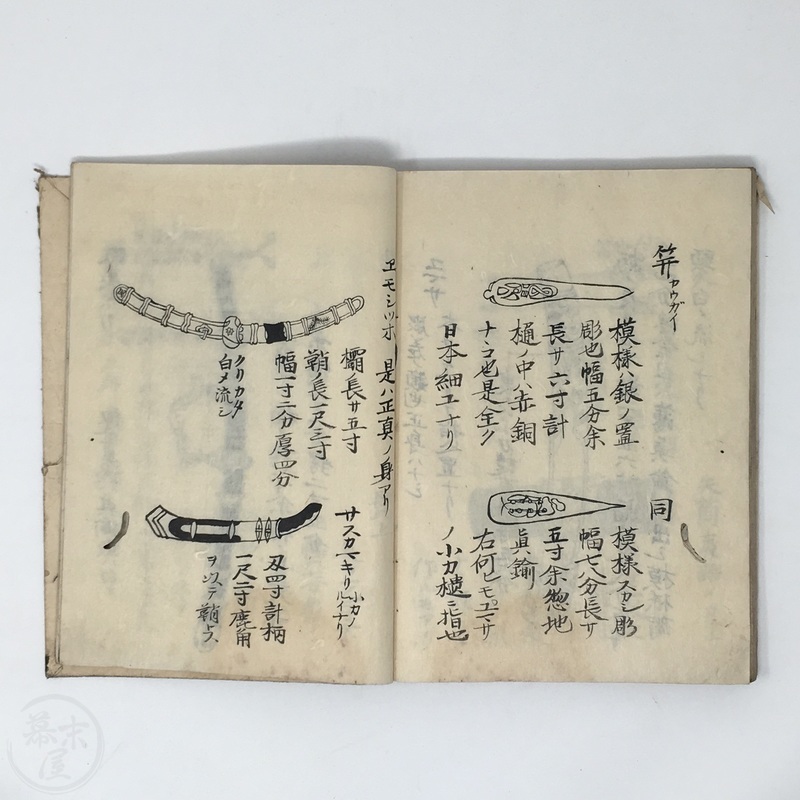 笄 カウガイ
模様ハ銀ノ置
彫也幅五分余
長サ六寸計
樋ノ中ハ赤銅
ナヽコ也是全ク
日本ノ細エナリ
同
模様スカシ彫
幅七八分長サ
五寸余惣地
真鍮
右何ヒモ
ノ小刀樋ニ指也
ヱモシツホ
是ハ正真ノ身アリ
欛ノ長サ五寸
鞘ノ長一尺三寸
幅一寸二分厚四分
クリカタ
白メ流シ
サスカ マキリ 小刀ノルイナリ
刄四寸計柄
一尺二寸鹿角
ヲ以テ鞘
幕末屋